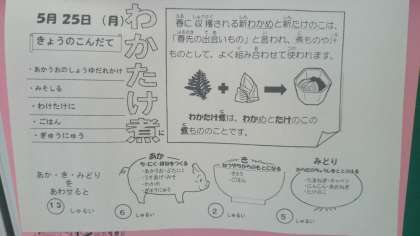 5月 25日 (月)
きょうのこんだて
・あかうおのしょうゆだれかけ
・みそしる
・わけたけに
・ごはん
・ぎゅうにゅう
わかたけ煮に
春に収穫される新わかめと新たけのこは、
「春先の出会いもの」と言われ、煮ものや汁
ものとして、よく組み合わせて使われます。
わかたけ煮は、わかめとたけのこの
煮もののことです。
あか・き・みどり
を
あわせると
13 しゅるい
あか
6 しゅるい
き
・ごはん
2 しゅるい
みどり
5 しゅるい